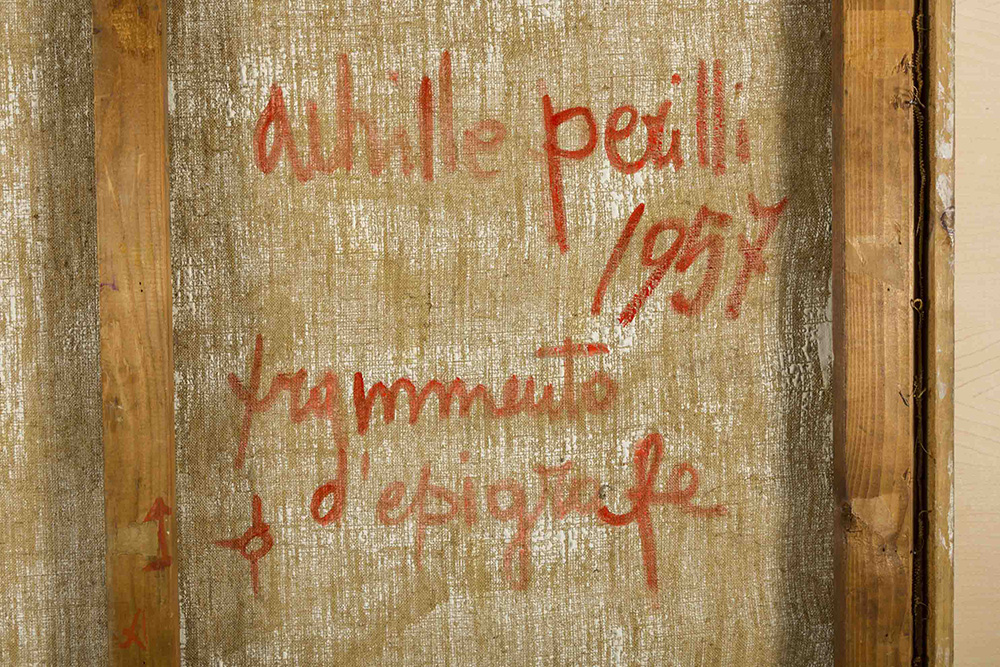 achille perilli
1957
frammento
d'epigrafe